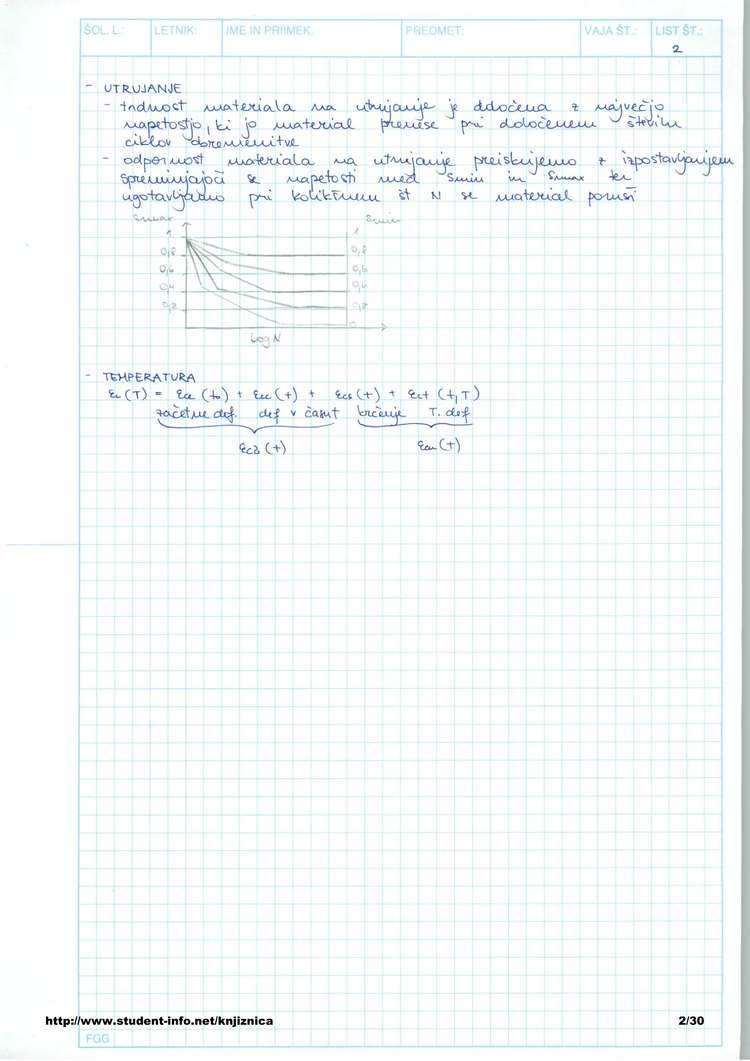 ŠOL. L.: LETNIK: IME IN PRIIMEK: PREDMET: VAJA ŠT.: LIST ŠT.:
2
- UTRUJANJE
- trdnost materiala na utrujanje je določena z največjo
napetostjo, ki jo material prenese pri določenem številu
ciklov obremenitve
- odpornost materiala na utrujanje preiskujemo z izpostavljanjem
spreminjajoči se napetosti med Smin in Smax ter
ugotavljamo pri kolikšnem št N se material poruši
Smax Smin
1 1
0,8 0,8
0,6 0,6
0,4 0,4
0,2 0,2
0
Log N
- TEMPERATURA
εc(T) = εce (t0) + εcc (t) + εcs (t) + εct (t,T)
začetne def. def v času t krčenje T. def
εcσ (t) εcn (t)
http://www.student-info.net/knjiznica 2/30
FGG